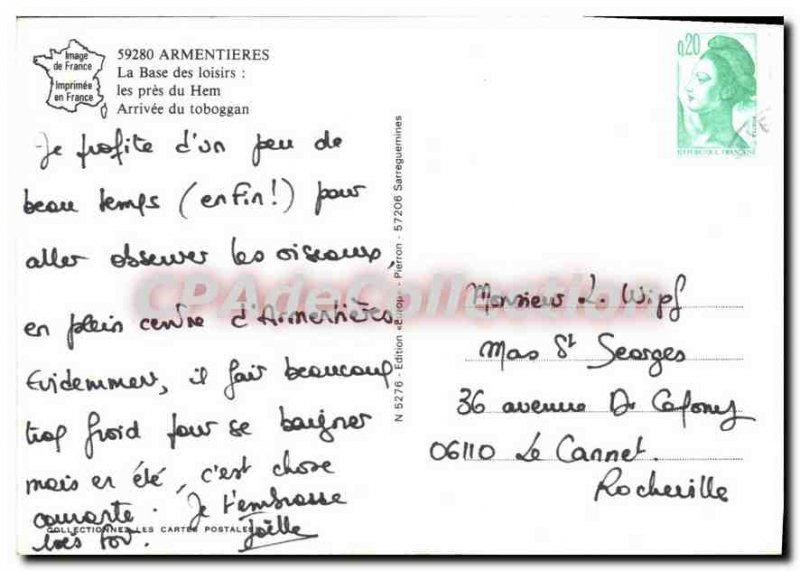 Image
de France
Imprimée
en France
59280 ARMENTIERES
La Base des loisirs :
les près du Hem
Arrivée du toboggan
Je profite d'un peu de
beau temps (enfin!) pour
aller observer les oiseaux,
en plein centre d'Armentières.
Evidemment, il fait beaucoup
trop froid pour se baigner
mais en été, c'est chose
courante. Je t'embrasse
très fort.
Joëlle
COLLECTIONNEZ LES CARTES POSTALES
N 5276 - Edition «Europ» - Pierron - 57206 Sarreguemines
CPAdeCollection
0,20
REPUBLIQUE FRANÇAISE
Monsieur L. Wipf
Mas St Georges
36 avenue Dr
06110 Le Cannet.
Rocheville